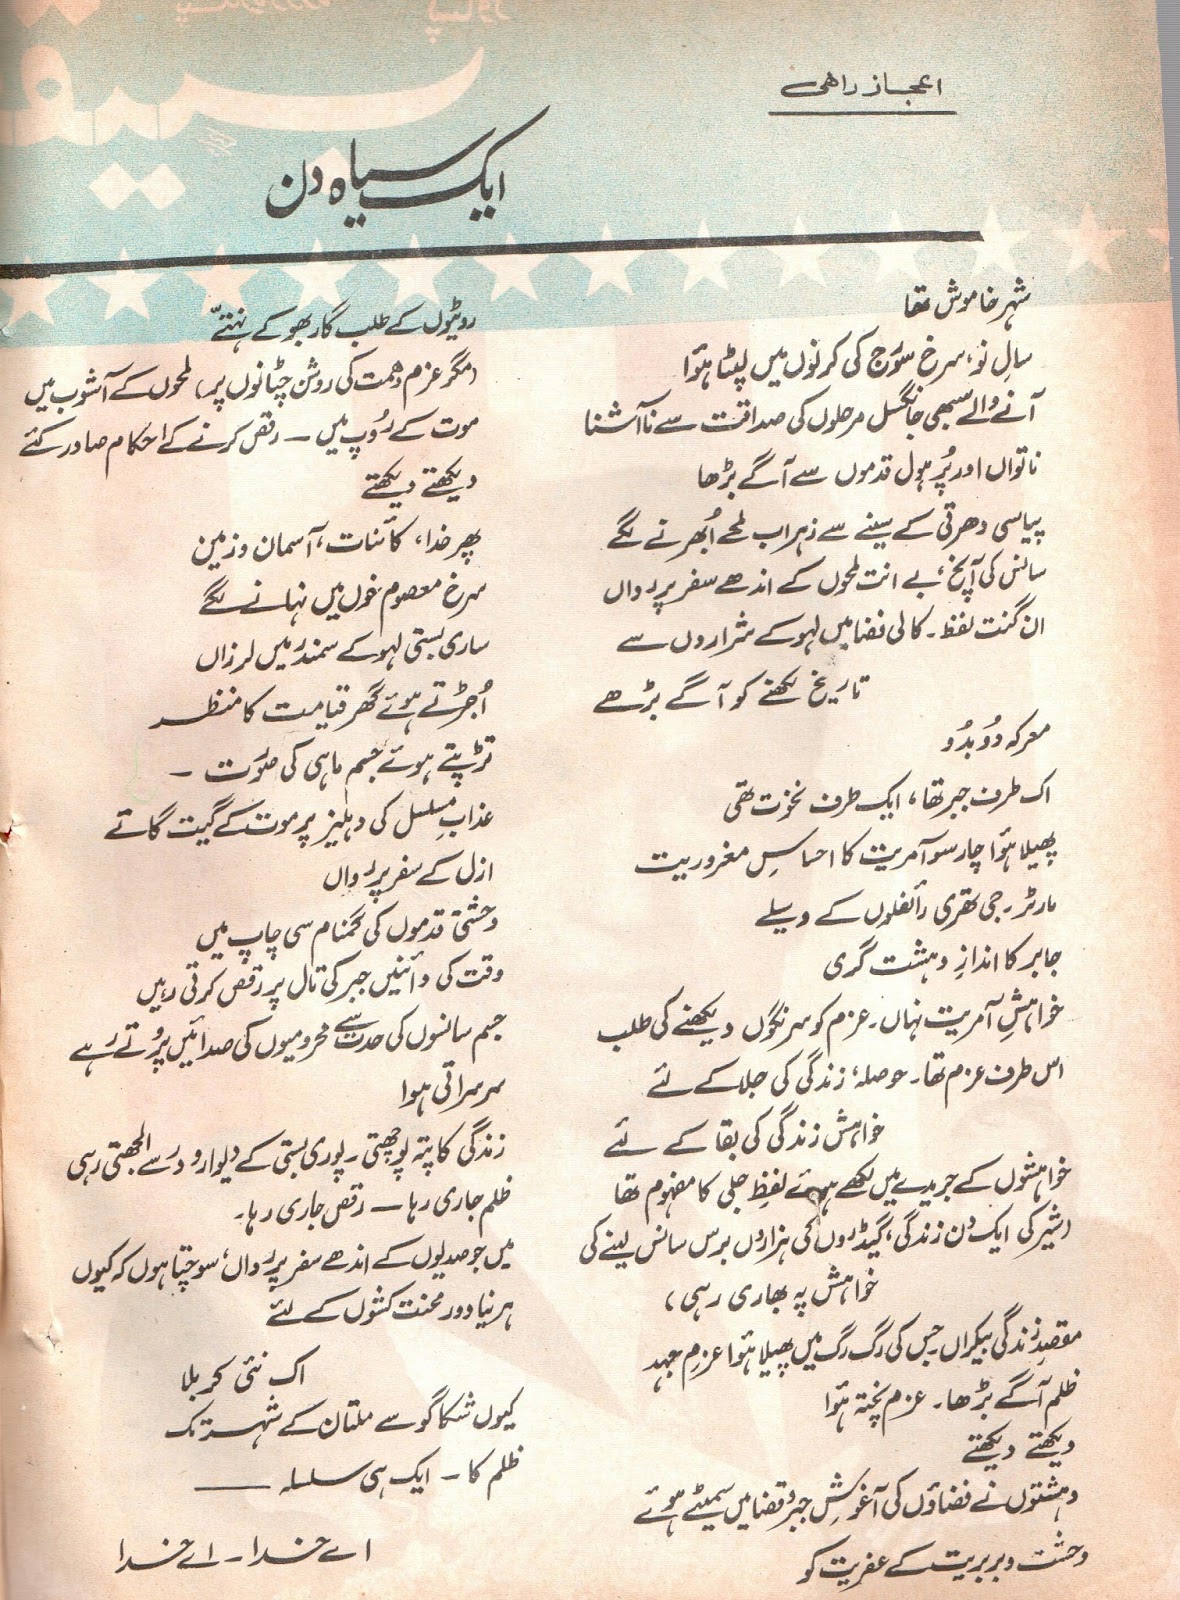 اعجاز راهی
ایک سیاہ دن
شہر خاموش تھا
سالِ نو، سرخ سورج کی کرنوں میں لپٹا ہوا
آنے والے سبھی جانگسل مرحلوں کی صداقت سے ناآشنا
ناتواں اور پُر ہول قدموں سے آگے بڑھا
پیاسی دھرتی کے سینے سے زہراب لمحے اُبھرنے لگے
سانس کی آنچ، بے انت لمحوں کے اندھے سفر پر رواں
ان گنت لفظ۔ کالی فضا میں لہو کے شراروں سے
تاریخ لکھنے کو آگے بڑھے
معرکہ دُو بدُو
اک طرف جبر تھا، ایک طرف نخوت تھی
پھیلا ہوا چار سو آمریت کا احساسِ مغروریت
مارٹر۔ جی تھری رائفلوں کے وسیلے
جابر کا اندازِ دہشت گری
خواہشِ آمریت نہاں۔ عزم کو سرنگوں دیکھنے کی طلب
اس طرف عزم تھا۔ حوصلہ، زندگی کی جلا کے لئے
خواہش زندگی کی بقا کے لئے
خواہشوں کے جریدے میں لکھے ہوئے لفظِ جلی کا مفہوم تھا
(شیر کی ایک دن زندگی، گیڈروں کی ہزاروں برس سانس لینے کی
خواہش پہ بھاری رہی)
مقصدِ زندگی بیکراں جس کی رگ رگ میں پھیلا ہوا عزمِ جہد
ظلم آگے بڑھا۔ عزم پختہ ہوا
دیکھتے دیکھتے
دہشتوں نے فضاؤں کی آغوشِ جبر و قضا میں سمیٹے ہوئے
وحشت و بربریت کے عفریت کو
روٹیوں کے طلب گار بھوکے نہتّے
(مگر عزم و ہمت کی روشن چٹانوں پر) لمحوں کے آشوب میں
موت کے رُوپ میں — رقص کرنے کے احکام صادر کئے
دیکھتے دیکھتے
پھر خدا، کائنات، آسمان و زمین
سرخ معصوم خوں میں نہانے لگے
ساری بستی لہو کے سمندر میں لرزاں
اُجڑتے ہوئے گھر قیامت کا منظر
تڑپتے ہوئے جسم ماہی کی صورت —
عذابِ مسلسل کی دہلیز پر موت کے گیت گاتے
ازل کے سفر پر رواں
وحشتی قدموں کی گمنام سی چاپ میں
وقت کی دائنیں جبر کی تال پر رقص کرتی رہیں
جسم سانسوں کی حدت سے محرومیوں کی صدائیں پروتے رہے
سرسراتی ہوا
زندگی کا پتہ پوچھتی۔ پوری بستی کے دیوار و در سے الجھتی رہی
ظلم جاری رہا — رقص جاری رہا۔
میں جو صدیوں کے اندھے سفر پر رواں، سوچتا ہوں کہ کیوں
ہر نیا دور محنت کشوں کے لئے
اک نئی کربلا
کیوں شکاگو سے ملتان کے شہر تک
ظلم کا — ایک ہی سلسلہ —
اے خدا — اے خدا